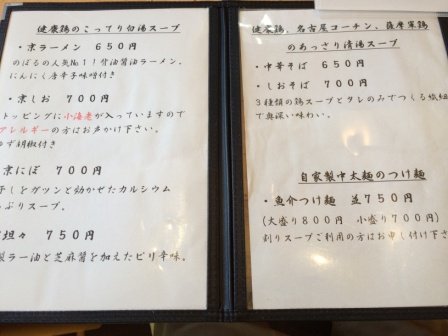 健康鶏のこってり白湯スープ
・京ラーメン 650円
のぼるの人気No1!背油醤油ラーメン。
にんにく唐辛子味噌付き
・京しお 700円
トッピングに小海老が入っていますので
アレルギーの方はお声かけ下さい。
ゆず胡椒付き
京にぼ 700円
干しをガツンと効かせたカルシウム
っぷりスープ。
担々 750円
製ラー油と芝麻醤を加えたピリ辛味。
健康鶏、名古屋コーチン、薩摩軍鶏
のあっさり清湯スープ
・中華そば 650円
・しおそば 700円
3種類の鶏スープとタレのみでつくる繊細
で奥深い味わい。
自家製中太麺のつけ麺
・魚介つけ麺 並750円
(大盛り800円 小盛り700円)
割りスープご利用の方はお申し付け下さ